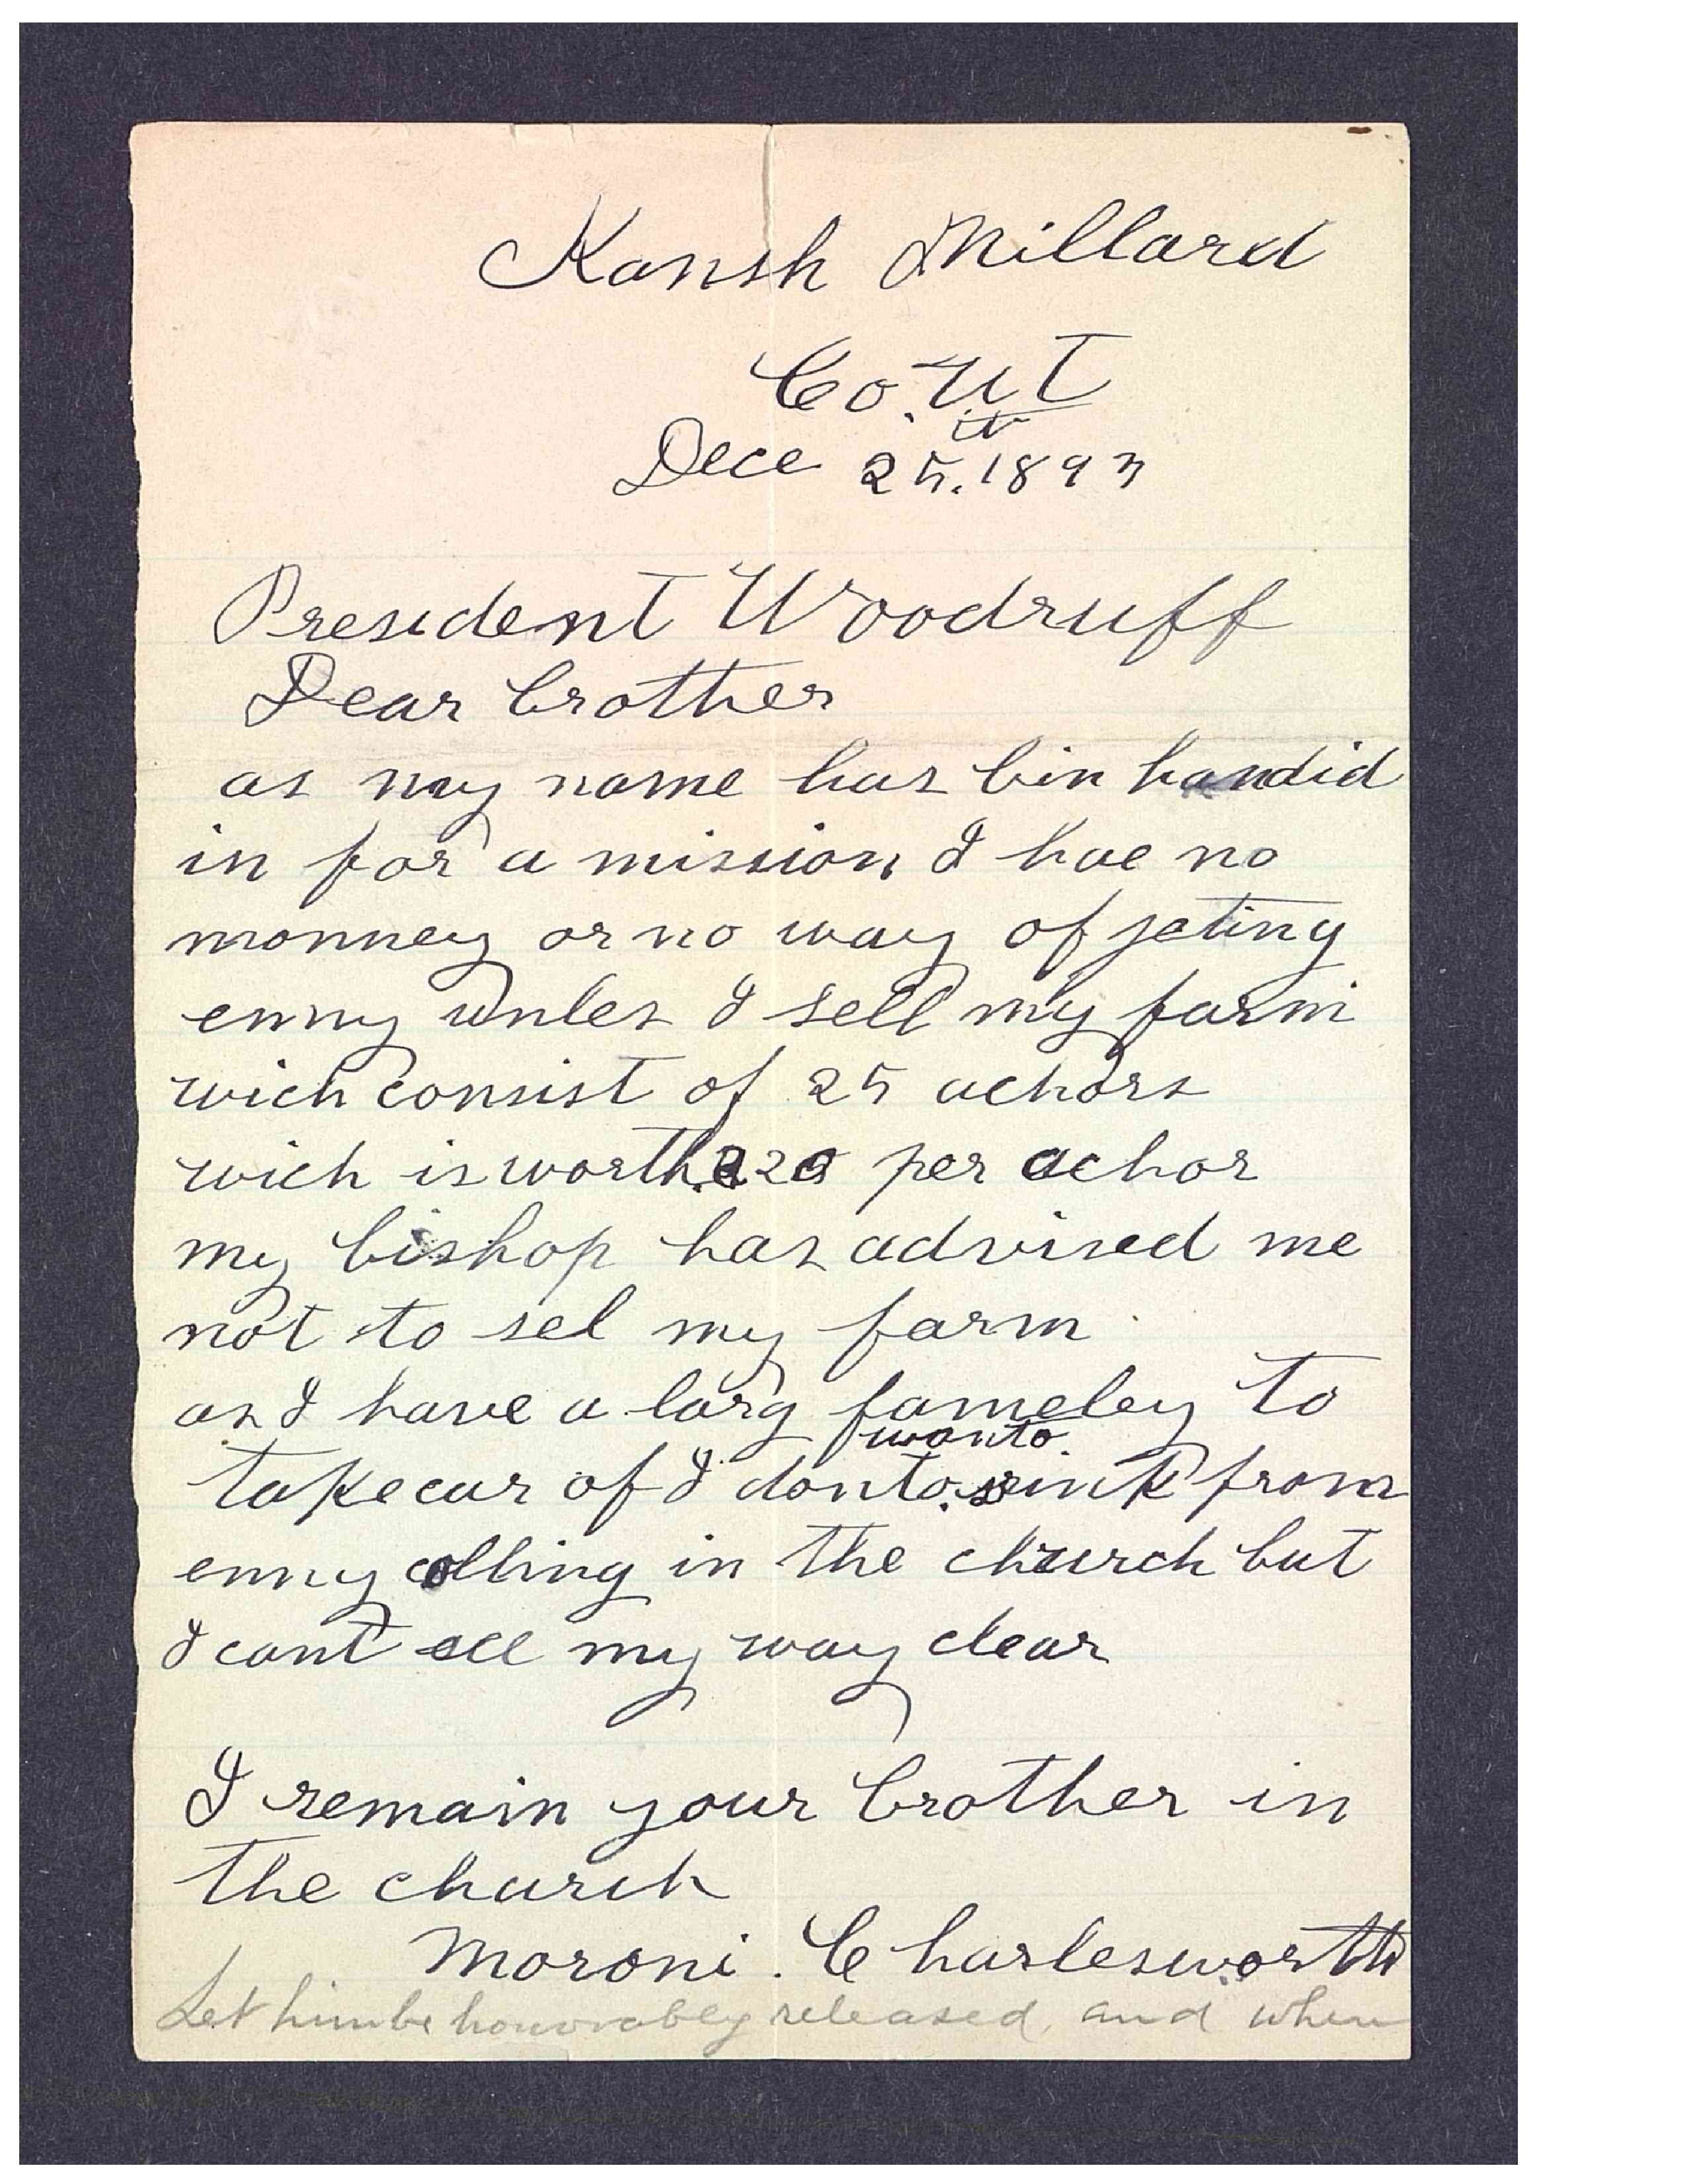 Kansh Millard
Co. UT
Dece 25.th 1893
President Woodruff
Dear brother
as my name has bin handid
in for a mission I hae no
monney or no way of geting
enny unles I sell my farm
wich consist of 25 achors
wich is worth 20 per achor
my bishop has advised me
not to sel my farm
as I have a larg fameley to
wanto
take car of I dont srink from
enny colling in the church but
I cant see my way clear
I remain your brother in
the church
Moroni. Charlesworth
Let him be honorably released, and when